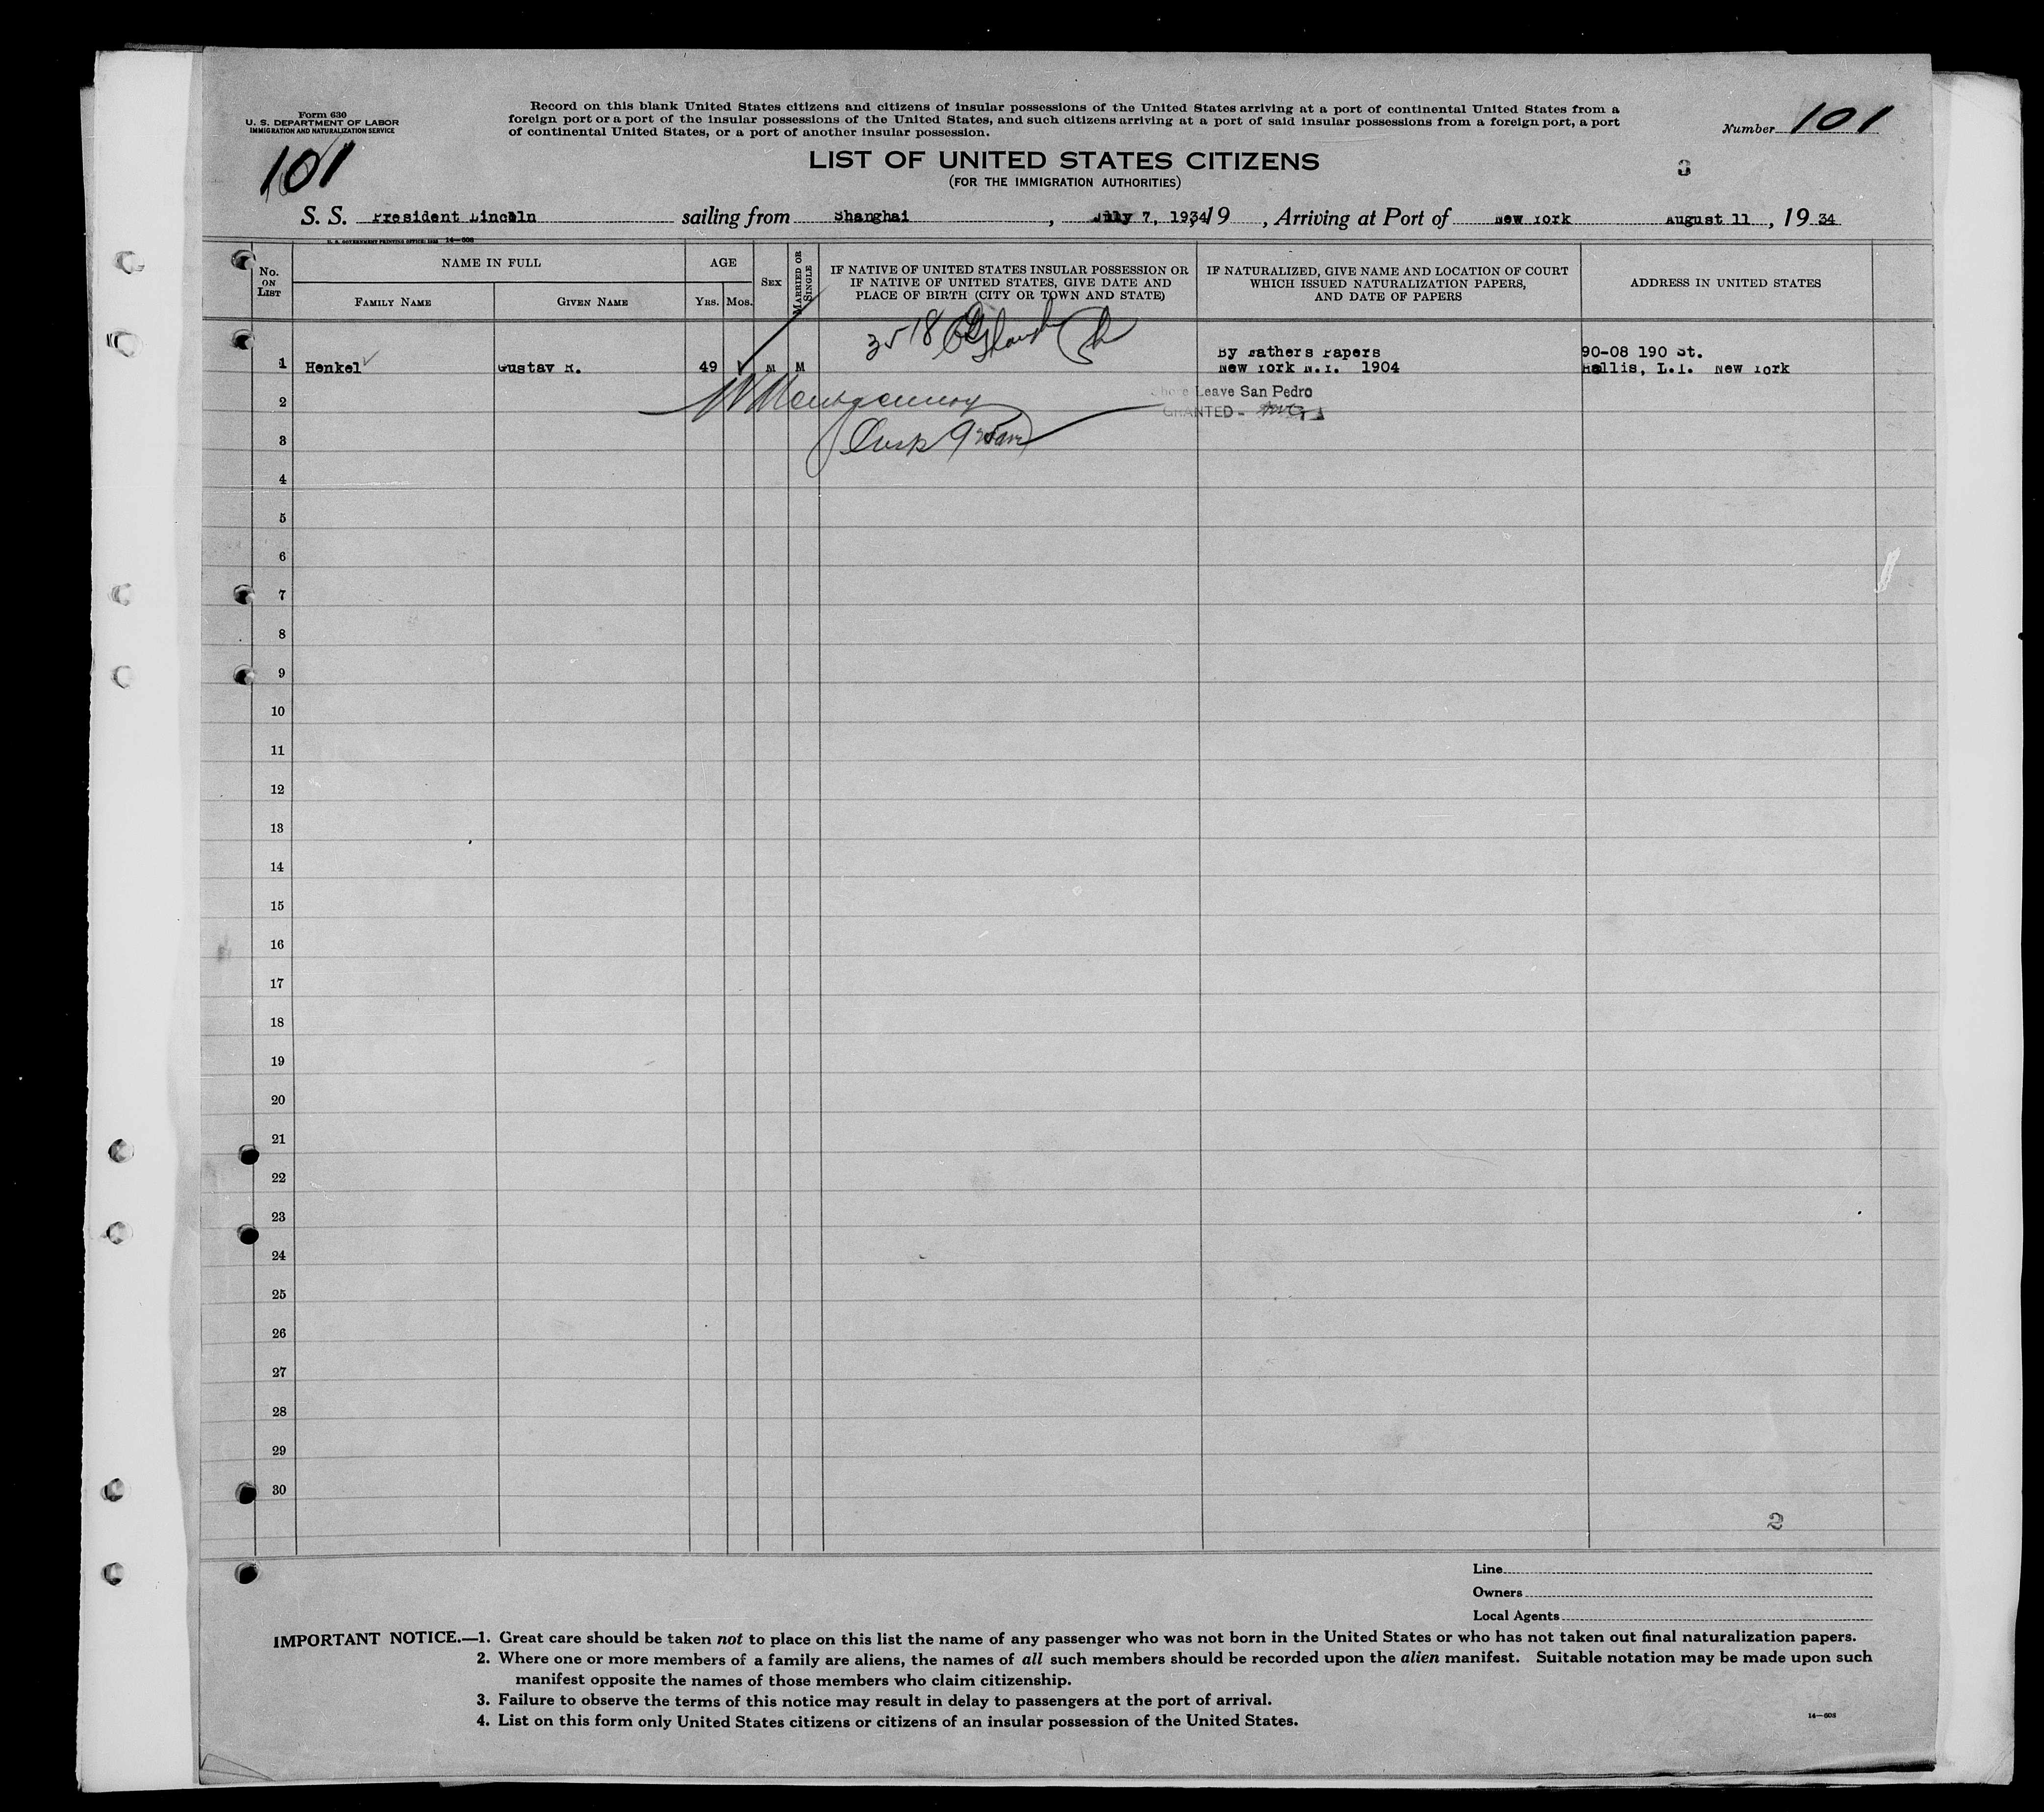 Form 630
U. S. DEPARTMENT OF LABOR
IMMIGRATION AND NATURALIZATION SERVICE
Record on this blank United States citizens and citizens of insular possessions of the United States arriving at a port of continental United States from a
foreign port or a port of the insular possessions of the United States, and such citizens arriving at a port of said insular possessions from a foreign port, a port
of continental United States, or a port of another insular possession.
Number 101
101
LIST OF UNITED STATES CITIZENS
(FOR THE IMMIGRATION AUTHORITIES)
3
S. S. President Lincoln sailing from Shanghai, July 7, 1934, 19, Arriving at Port of New York August 11, 19 34
U. S. GOVERNMENT PRINTING OFFICE: 14—608
No. ON LIST
NAME IN FULL
FAMILY NAME
GIVEN NAME
AGE
YRS.
MOS.
SEX
MARRIED OR SINGLE
IF NATIVE OF UNITED STATES INSULAR POSSESSION OR
IF NATIVE OF UNITED STATES, GIVE DATE AND
PLACE OF BIRTH (CITY OR TOWN AND STATE)
IF NATURALIZED, GIVE NAME AND LOCATION OF COURT
WHICH ISSUED NATURALIZATION PAPERS,
AND DATE OF PAPERS
ADDRESS IN UNITED STATES
3518
By Fathers Papers
90-08 190 St.
1 Henkel Gustav R. 49 M M New York N.Y. 1904 Hollis, L.I. New York
2 Montgomery
Shore Leave San Pedro
GRANTED -
3
4
5
6
7
8
9
10
11
12
13
14
15
16
17
18
19
20
21
22
23
24
25
26
27
28
29
30
2
Line
Owners
Local Agents
IMPORTANT NOTICE.—1. Great care should be taken not to place on this list the name of any passenger who was not born in the United States or who has not taken out final naturalization papers.
2. Where one or more members of a family are aliens, the names of all such members should be recorded upon the alien manifest. Suitable notation may be made upon such
manifest opposite the names of those members who claim citizenship.
3. Failure to observe the terms of this notice may result in delay to passengers at the port of arrival.
4. List on this form only United States citizens or citizens of an insular possession of the United States.
14—608